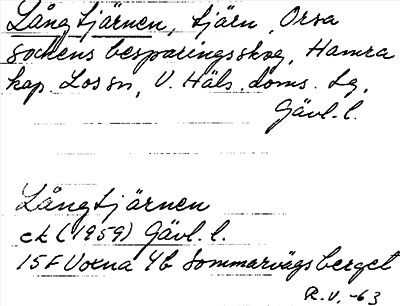 Långtjärnen, tjärn, Orsa
sockens besparingsskog, Hamra
kap. Los sn, V. Häls. doms. sg,
Gävl. l.
Långtjärnen
ek (1959) Gävl. l.
15F Voxna 4b Sommarvägsberget
R.V. -63